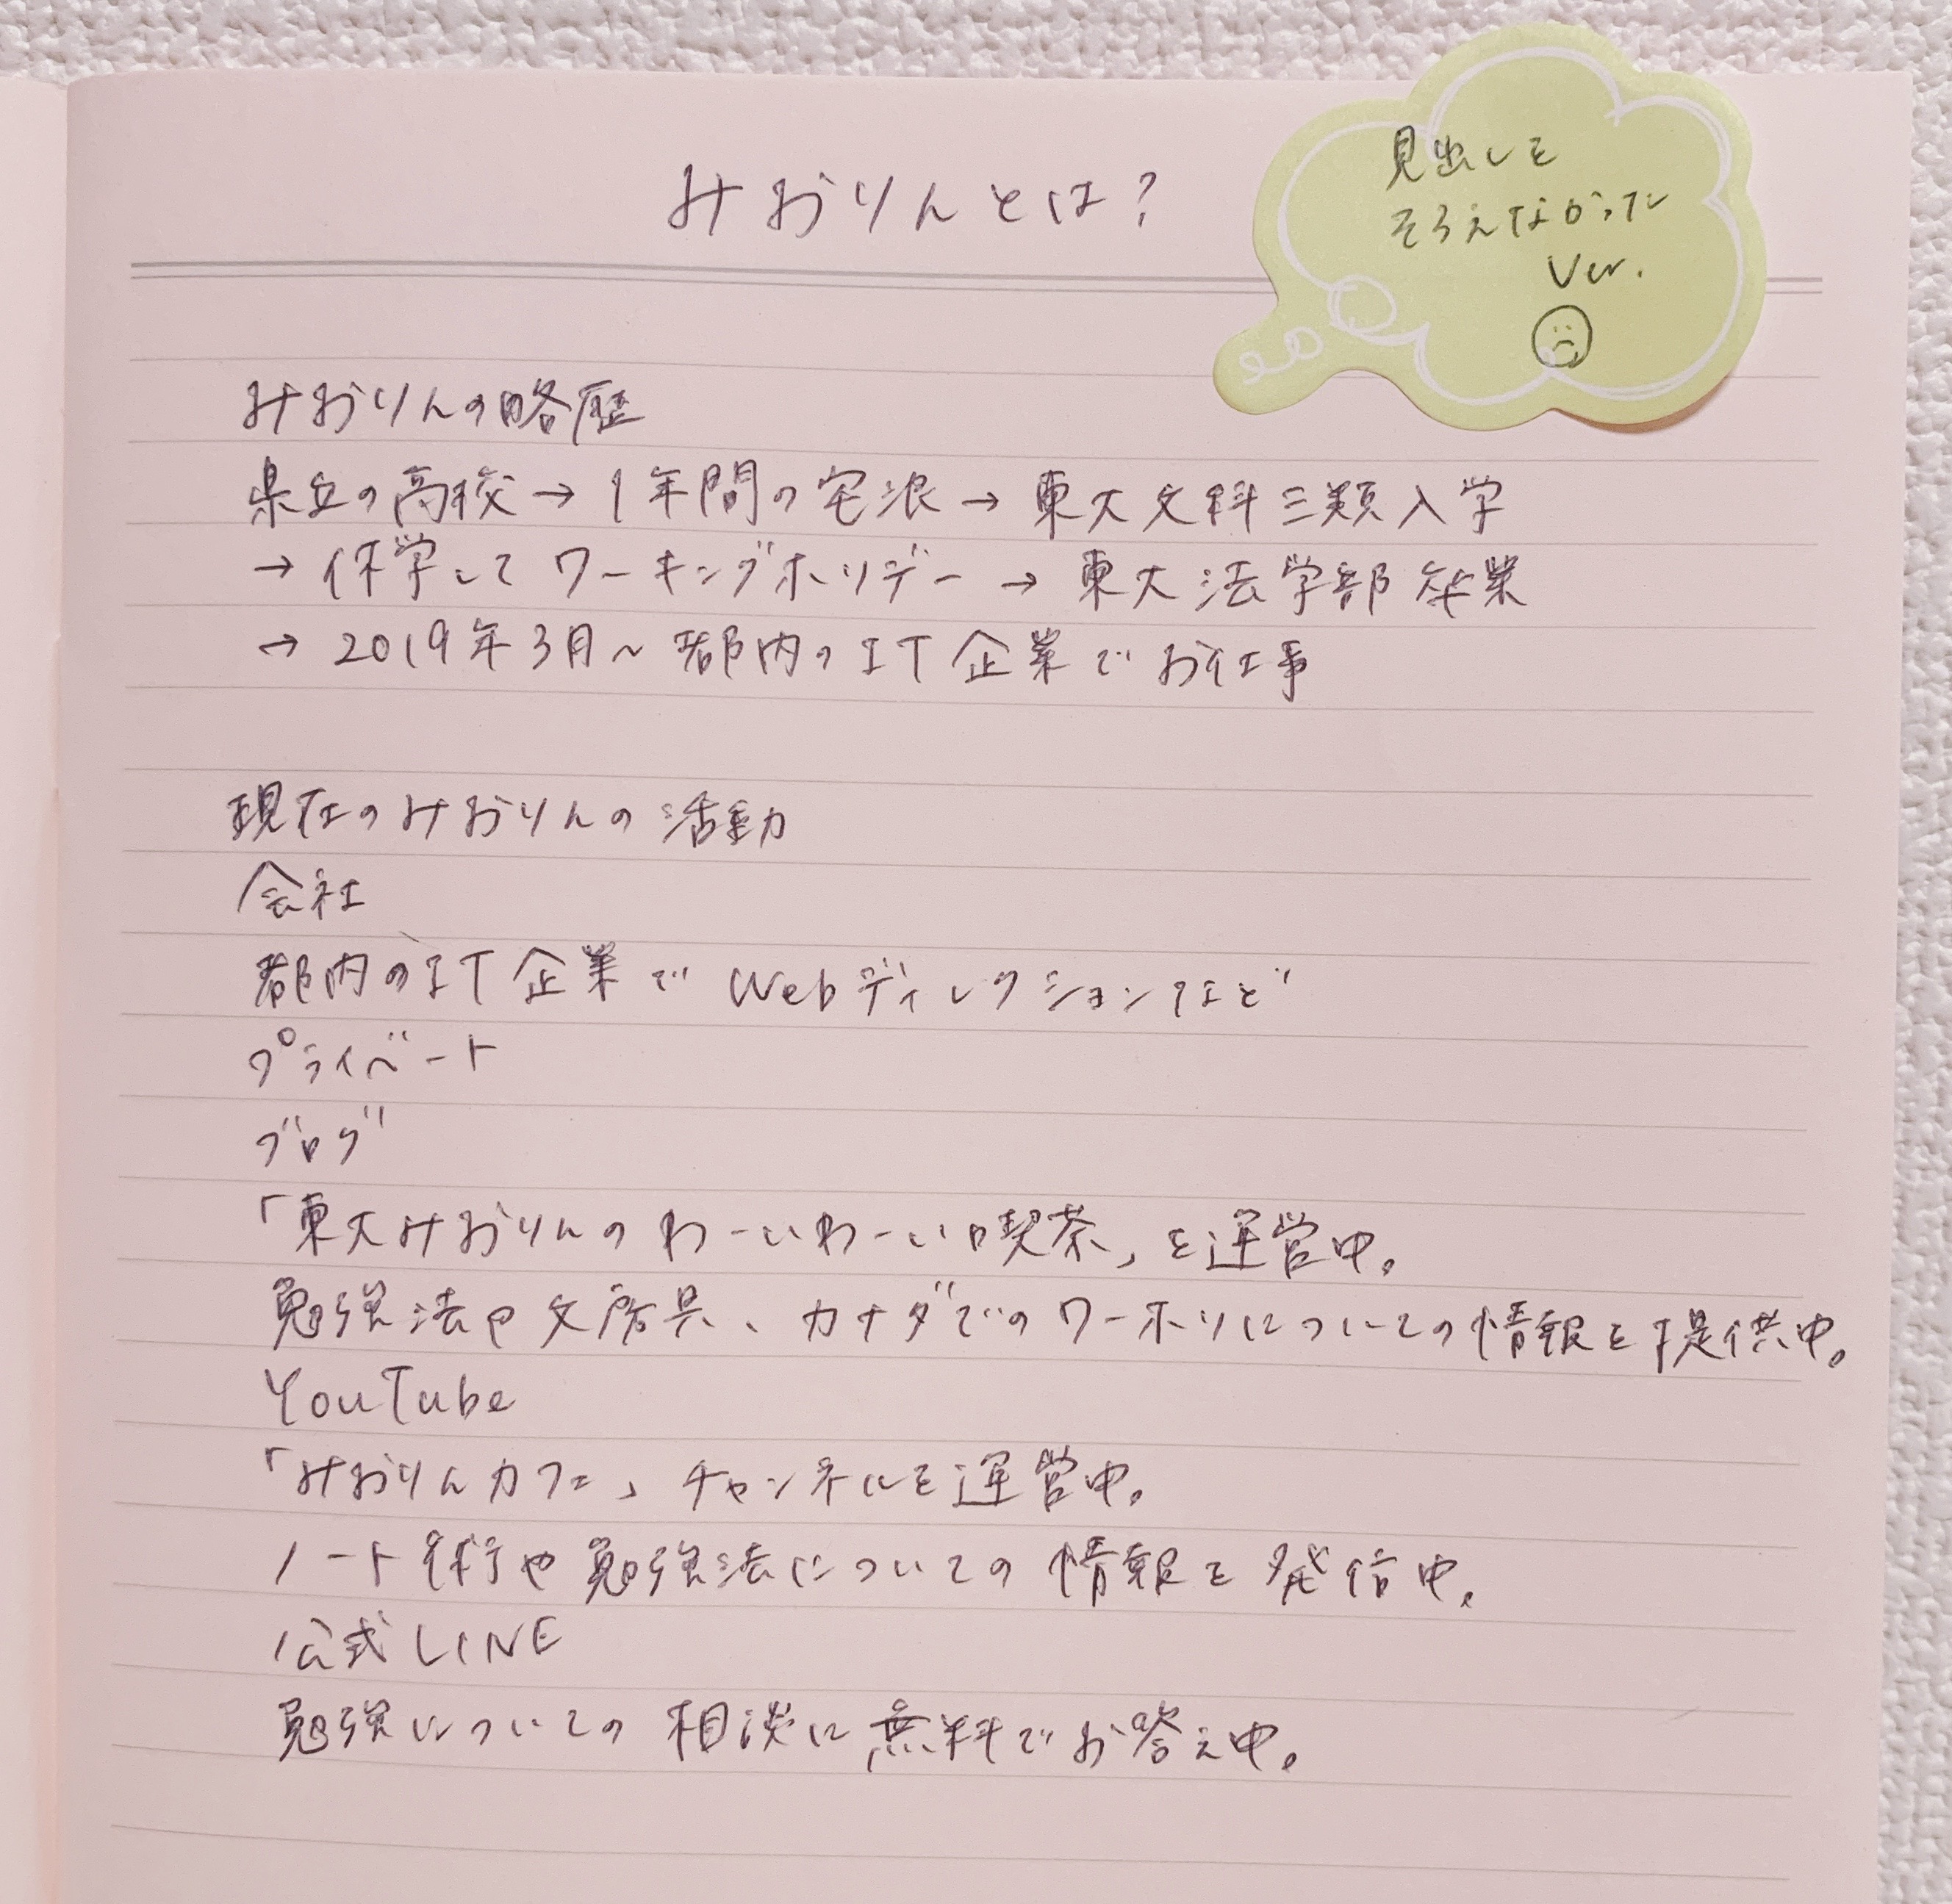 みおりんとは?
見出しを
そろえなかった
Ver.
みおりんの略歴
県立の高校→1年間の宅浪→東大文科三類入学
→休学してワーキングホリデー→東大法学部卒業
→2019年3月~都内のIT企業でお仕事
現在のみおりんの活動
会社
都内のIT企業でWebディレクションなど
プライベート
ブログ
「東大みおりんのわーいわーい喫茶」を運営中。
勉強法や文房具、カナダでのワーホリについての情報を提供中。
YouTube
「みおりんカフェ」チャンネルを運営中。
ノート術や勉強法についての情報を発信中。
公式LINE
勉強についての相談に無料でお答え中。